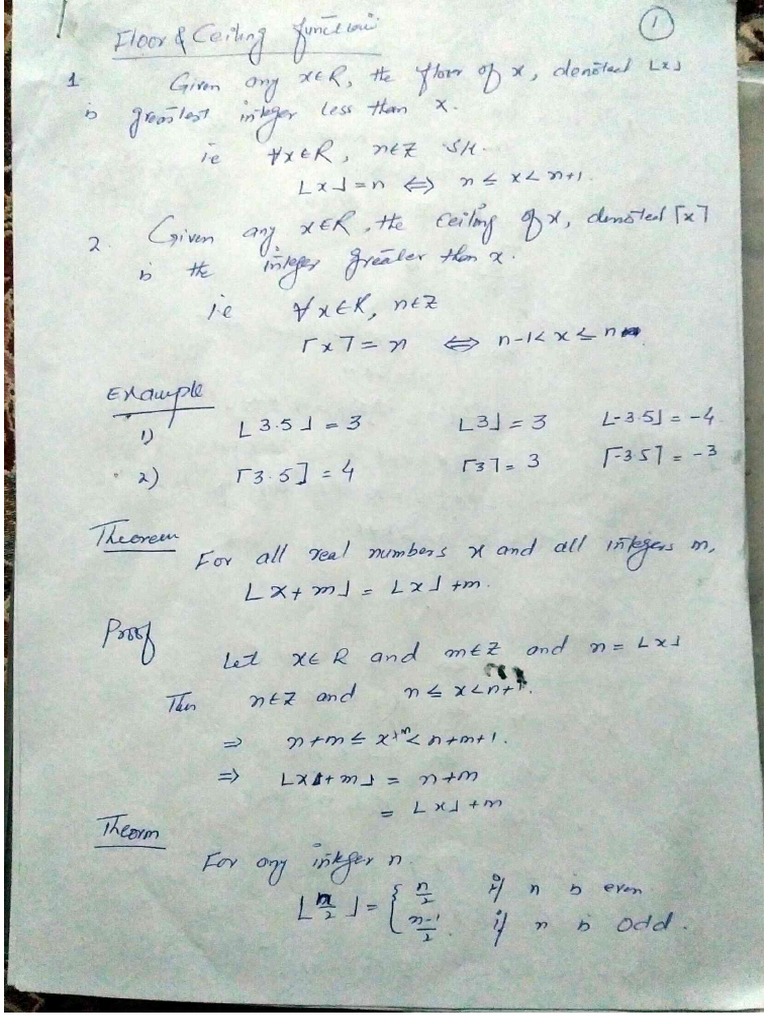 1
Floor & Ceiling function
1 Given any x∈R, the floor of x, denoted ⌊x⌋
is greatest integer less than x.
ie ∀x∈R, n∈Z s.t.
⌊x⌋=n ⇔ n ≤ x < n+1.
2. Given any x∈R, the ceiling of x, denoted ⌈x⌉
is the integer greater than x.
i.e ∀x∈R, n∈Z
⌈x⌉ = n ⇔ n-1< x ≤ n
Example
1) ⌊3.5⌋ = 3 ⌊3⌋ = 3 ⌊-3.5⌋ = -4
2) ⌈3.5⌉ = 4 ⌈3⌉ = 3 ⌈-3.5⌉ = -3
Theorem
For all real numbers x and all integers m,
⌊x+m⌋ = ⌊x⌋+m.
Proof
Let x∈R and m∈Z and n = ⌊x⌋
Then n∈Z and n ≤ x<n+1.
⇒ n+m ≤ x+m < n+m+1.
⇒ ⌊x+m⌋ = n+m
= ⌊x⌋+m
Theorm
For any integer n
⌊n/2⌋ = { n/2 if n is even
n-1/2. if n is odd.